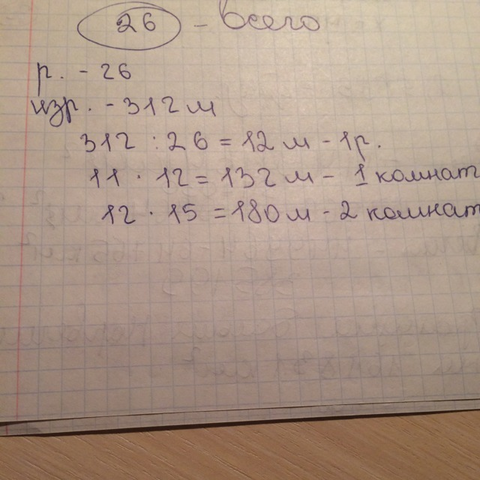 26 - всего
р. - 26
изр. - 312 м
312 : 26 = 12 м - 1р.
11 · 12 = 132 м - 1 комнат
12 · 15 = 180 м - 2 комнат